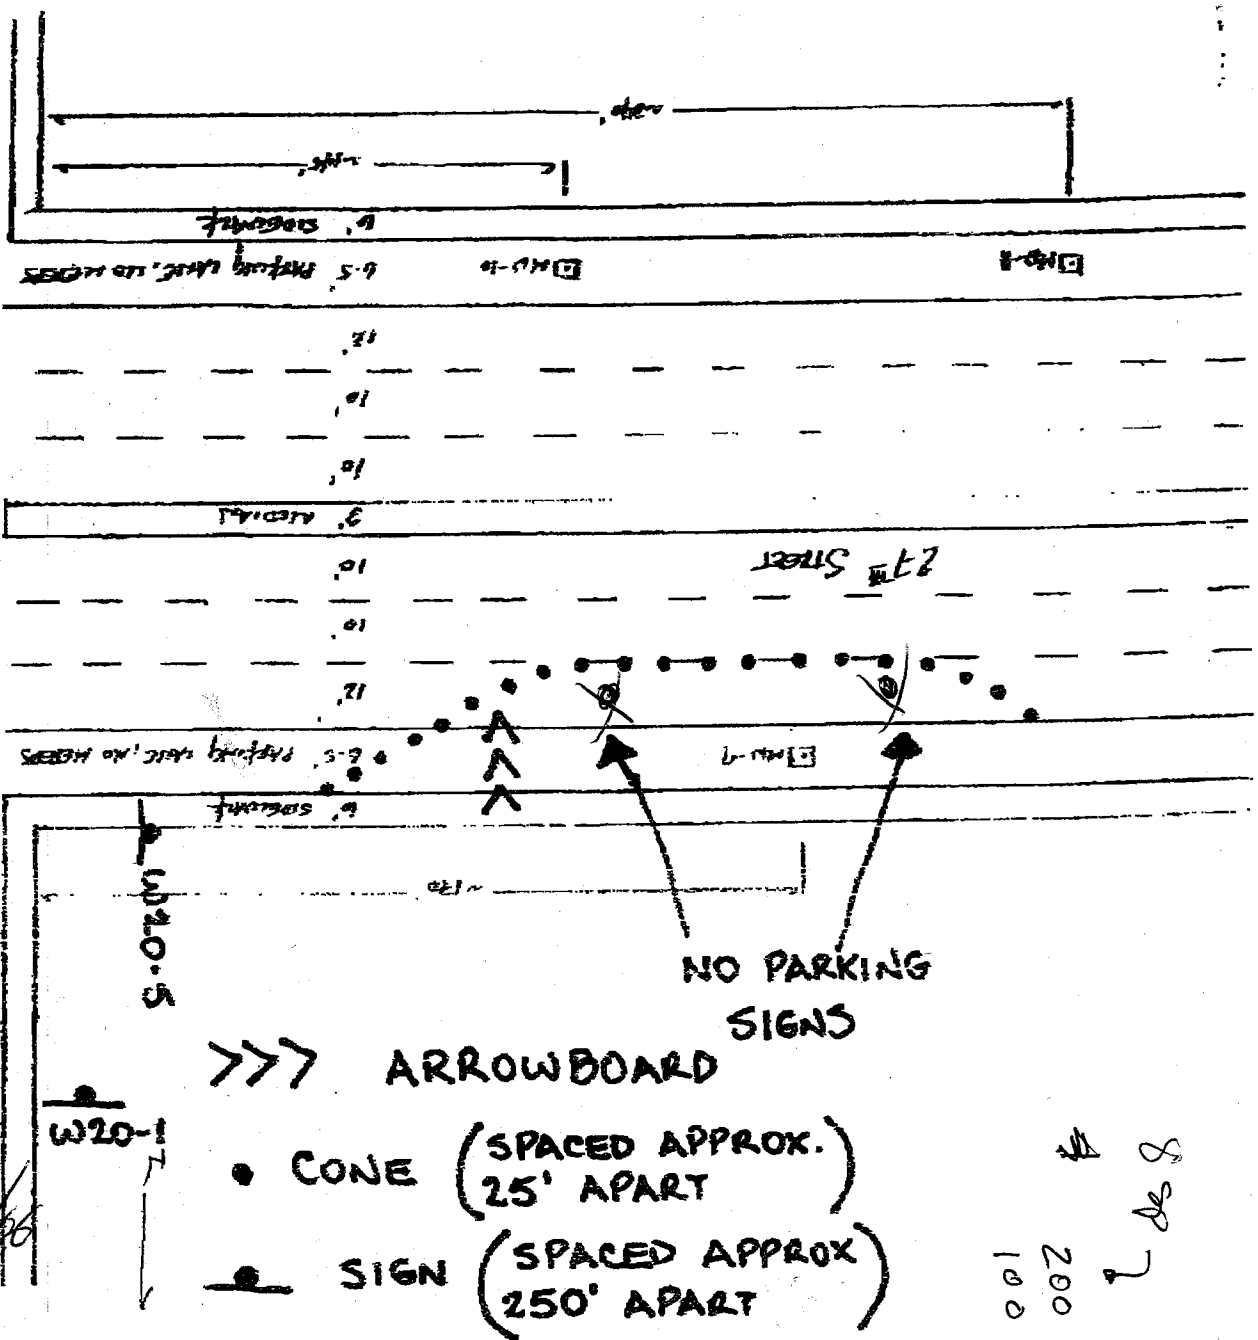 ~340'
~165'
6' SIDEWALK
6.5' PARKING LANE, NO METERS
MW-10
12'
10'
10'
3' MEDIAN
27TH STREET
10'
10'
12'
6.5' PARKING LANE, NO METERS
MW-9
6' SIDEWALK
~170
W20-5
NO PARKING
SIGNS
>>> ARROWBOARD
W20-1
CONE (SPACED APPROX.
25' APART)
SIGN (SPACED APPROX
250' APART)
200
100